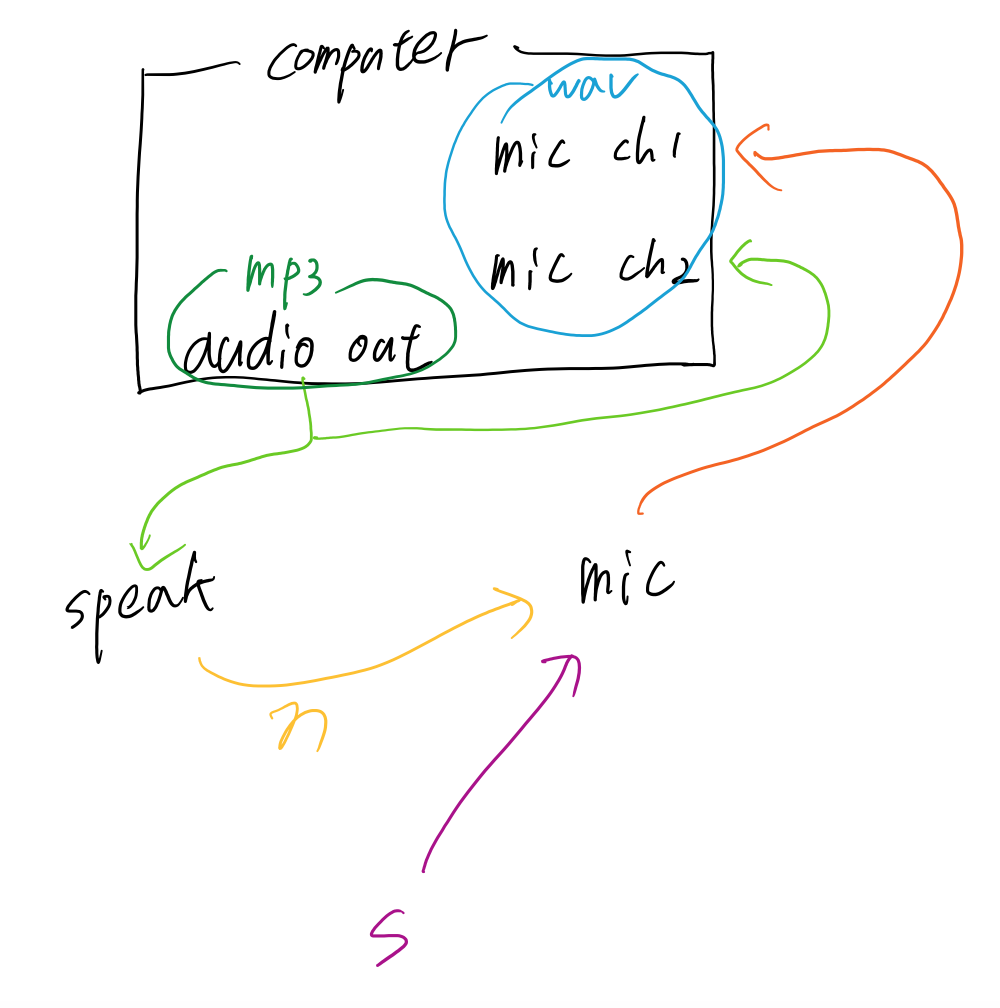 computer
wav
mic ch1
mic ch2
mp3
audio out
speak
mic
n
s